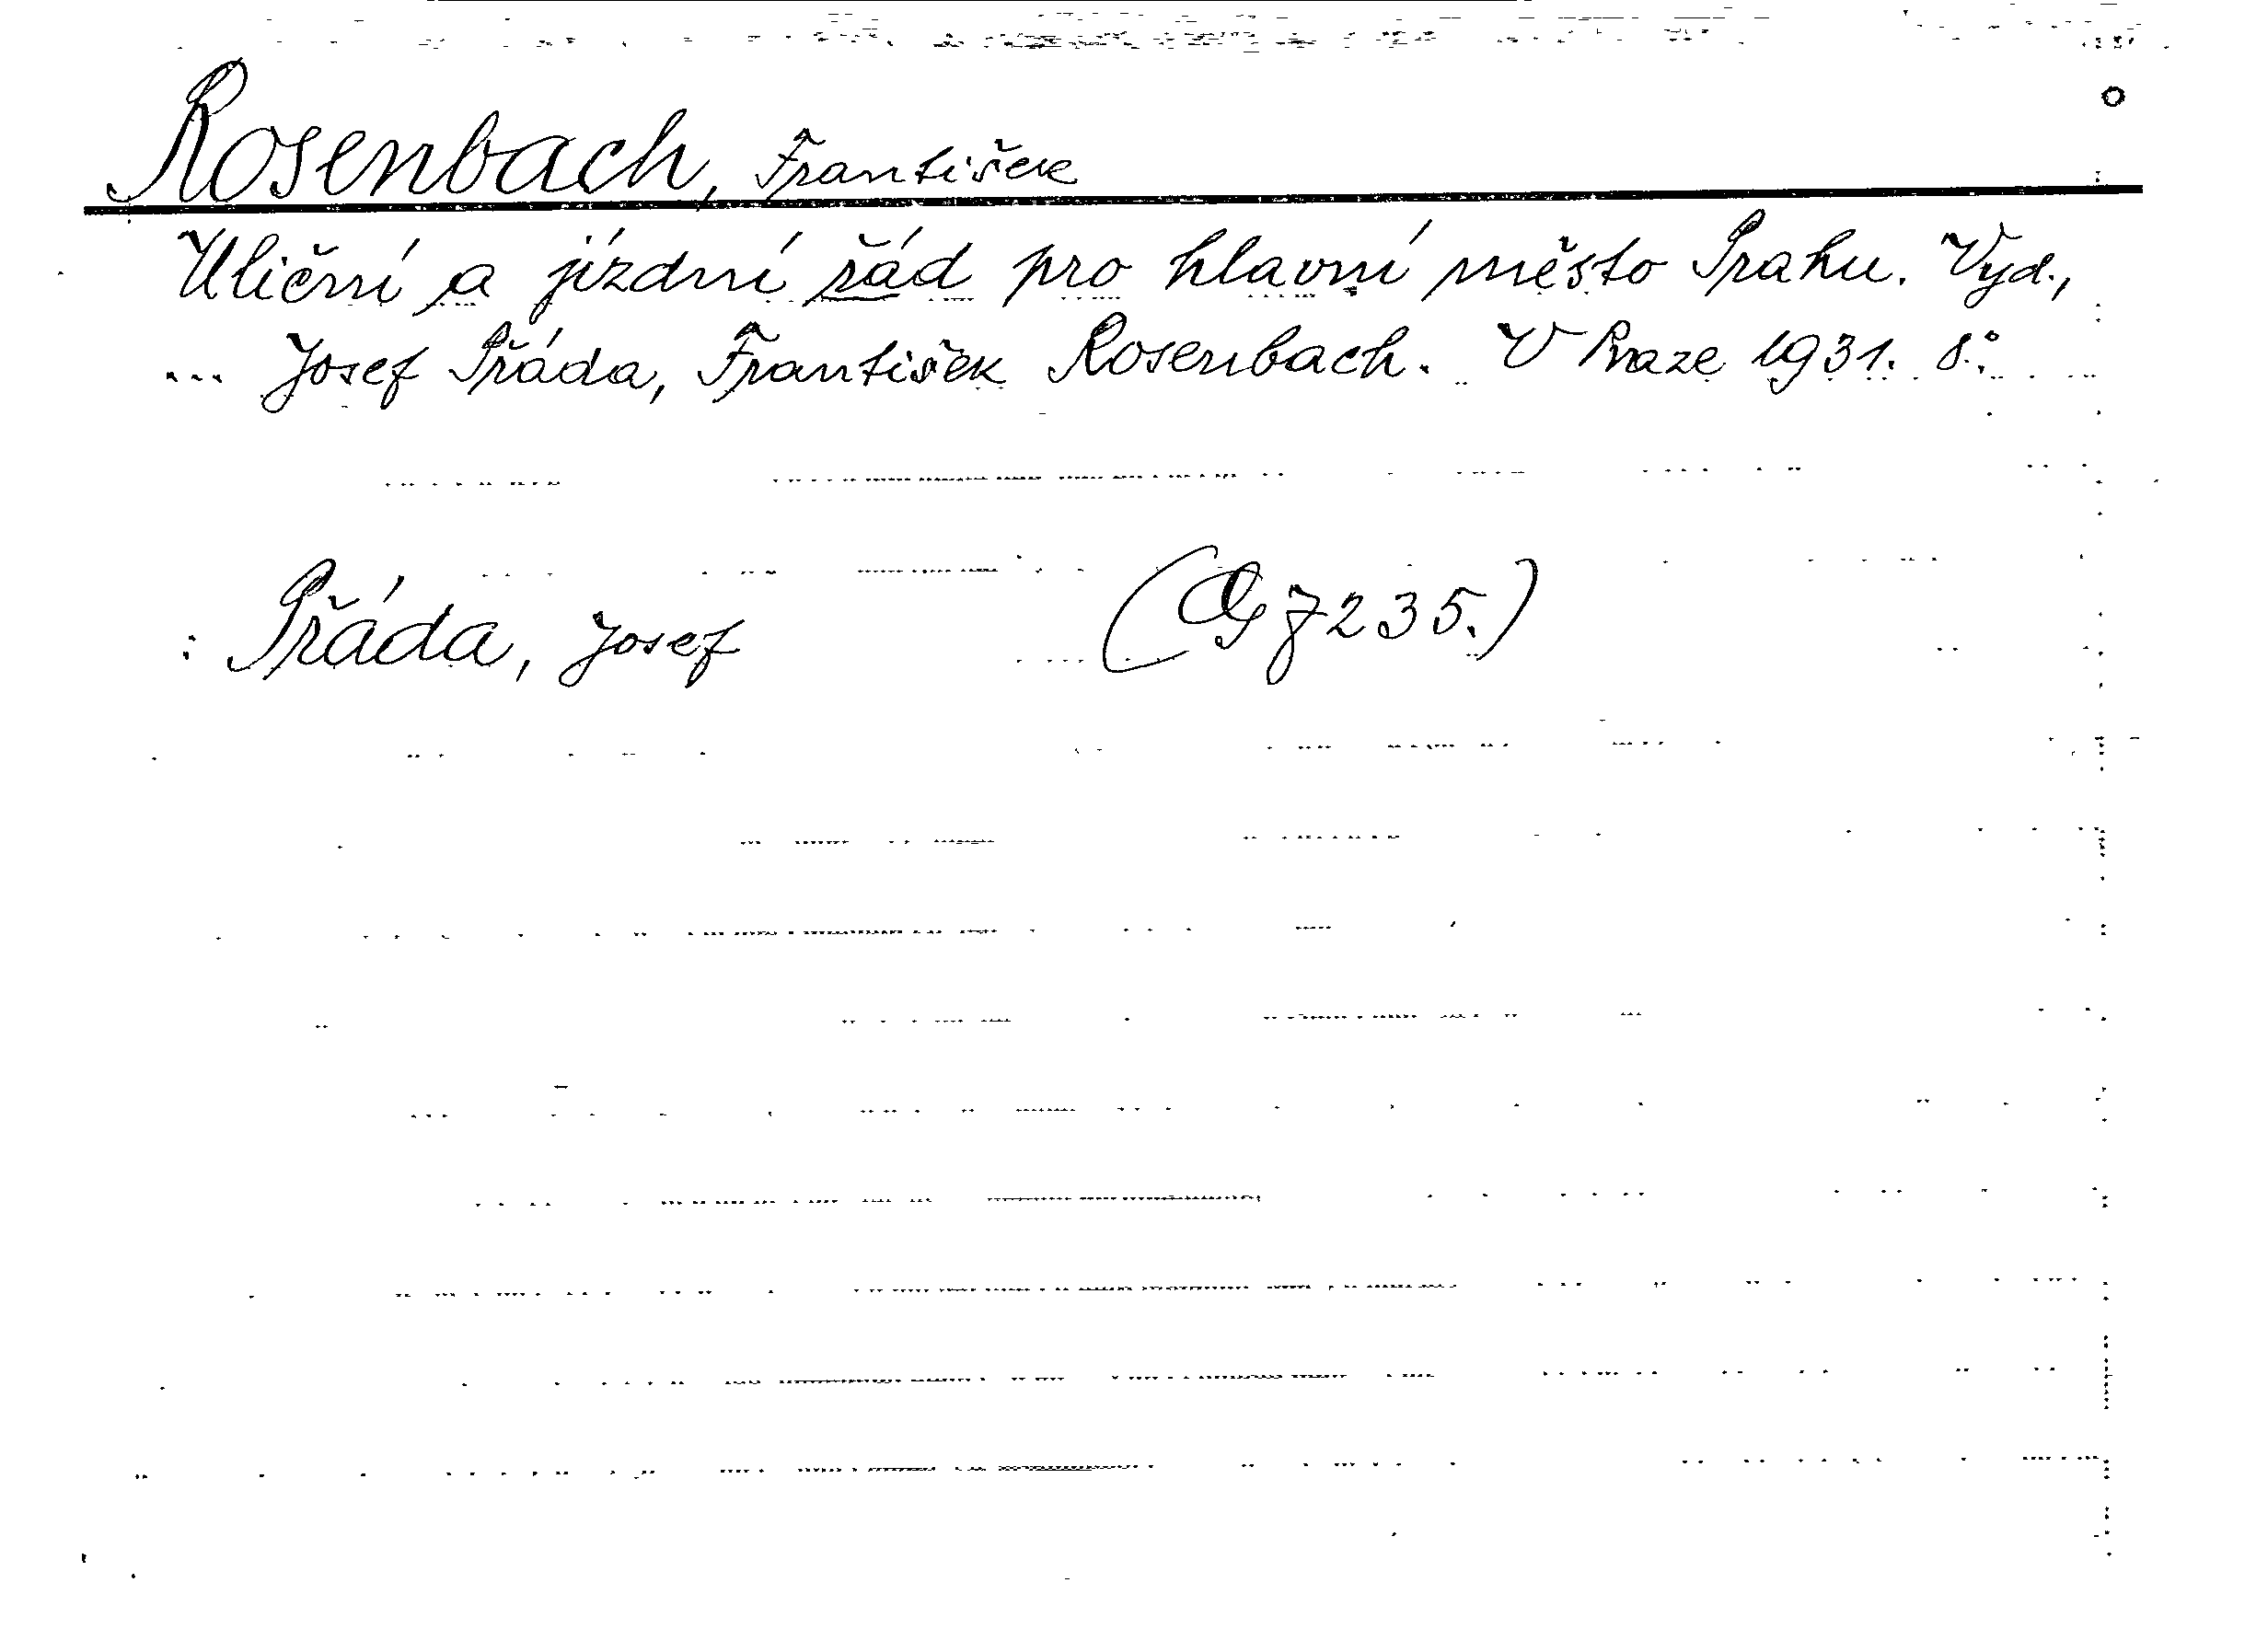 Rosenbach, František
Uliční a jízdní řád pro hlavní město Prahu. Vyd.,
... Josef Přáda, František Rosenbach. V Praze 1931. 8.°
: Přáda, Josef (G 7235.)